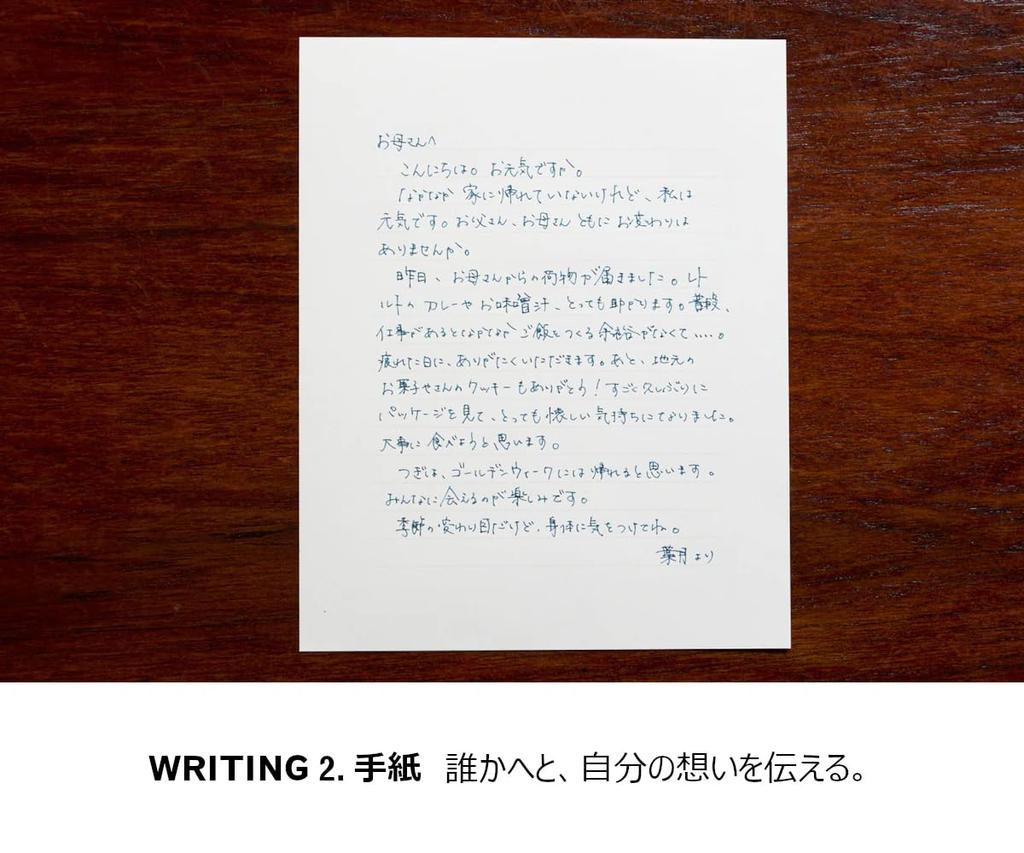 お母さんへ
こんにちは。お元気ですか。
なかなか 家に帰れていないけれど、私は
元気です。お父さん、お母さん ともに お変わりは
ありませんか。
昨日、お母さんからの荷物が届きました。レト
ルトの カレーや お味噌汁、とっても助かります。普段、
仕事があるとなかなか ご飯をつくる余裕がなくて……。
疲れた日に、ありがたくいただきます。あと、地元の
お菓子やさんのクッキーもありがとう！すごく久しぶりに
パッケージを見て、とっても懐しい気持ちになりました。
大事に食べようと思います。
つぎは、ゴールデンウィークには帰れると思います。
みんなに会えるのが楽しみです。
季節の変わり目だけど、身体に気をつけてね。
葉月より
WRITING 2. 手紙 誰かへと、自分の想いを伝える。